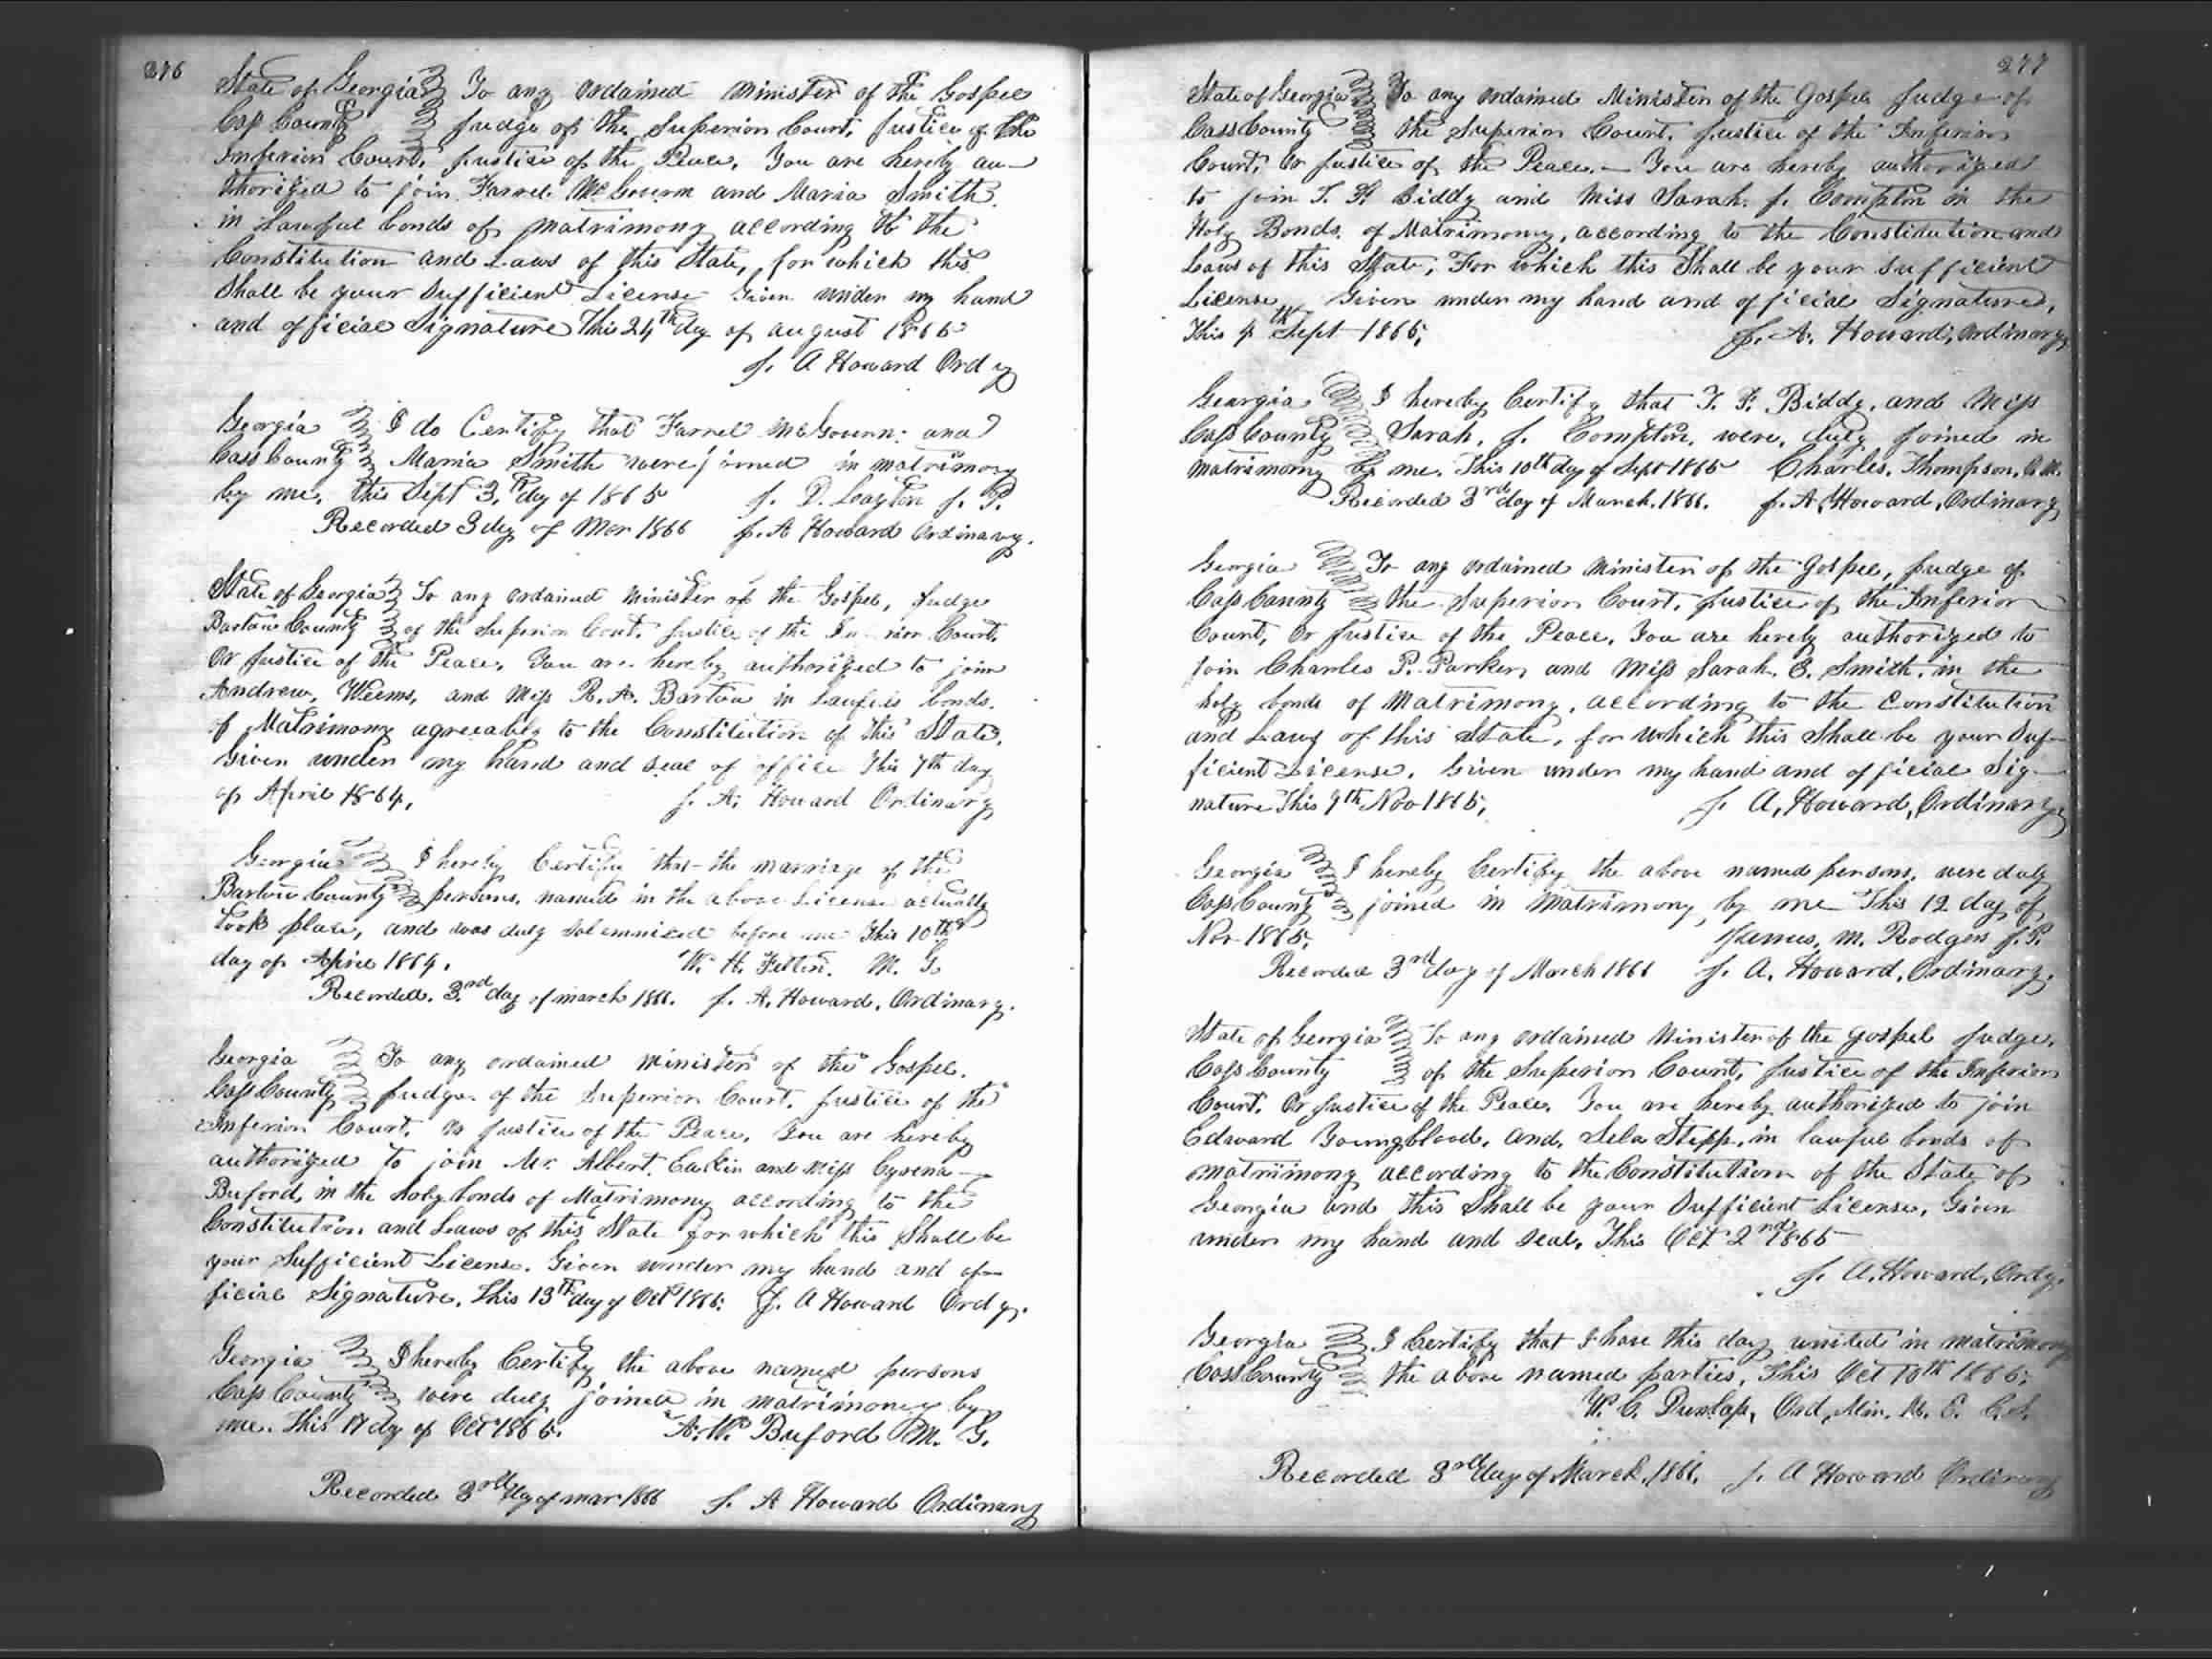 276
State of Georgia To any ordained Minister of the Gospel
Cass County Judge of the Superior Court, Justice of the
Inferior Court, Justice of the Peace, You are hereby au-
thorized to join Farrel McGovern and Maria Smith
in Lawful bonds of matrimony according to the
Constitution and Laws of this State, for which this
Shall be your Sufficient License Given under my hand
and official Signature This 24th day of august 1865
J. A Howard Ord y
Georgia I do Certify that Farrel McGovern and
Cass County Maria Smith were joined in matrimony
by me, this Sept 3rd day of 1865 J. D. Layton J. P.
Recorded 3 dy of Mar 1866 J. A Howard Ordinary.
State of Georgia To any ordained Minister of the Gospel, Judge
Bartow County of the Superior Court, Justice of the Inferior Court,
Or Justice of the Peace, You are hereby authorized to join
Andrew, Weems, and Miss R. A. Barton in Lawful bonds.
of Matrimony agreeably to the Constitution of this State,
Given under my hand and seal of office This 7th day
of April 1864, J. A. Howard Ordinary
Georgia I hereby Certify that the marriage of the
Bartow County persons, named in the above License actually
took place, and was duly solemnized before me This 10th
day of April 1864. W. H. Felton. M. G.
Recorded. 3rd day of march 1866. J. A. Howard, Ordinary.
Georgia To any ordained Minister of the Gospel.
Cass County Judge of the Superior Court, Justice of the
Inferior Court, Or Justice of the Peace, You are hereby
authorized to join Mr. Albert Eakin and Miss Cyrena
Buford, in the holy bonds of Matrimony according to the
Constitution and Laws of this State for which this Shall be
your Sufficient License. Given under my hand and of-
ficial Signature, This 13th day of Oct 1865. J. A Howard Ordy.
Georgia I hereby Certify the above named persons
Cass County were duly joined in matrimony by
me. This 17 dy of Oct 1865. A. W. Buford M. G.
Recorded 3rd dy of mar 1866 J. A Howard Ordinary
277
State of Georgia To any ordained Minister of the Gospel Judge of
Cass County the Superior Court, Justice of the Inferior
Court, Or Justice of the Peace. You are hereby authorized
to join T. F. Biddy and Miss Sarah. J. Compton in the
Holy Bonds, of Matrimony, according to the Constitution and
Laws of this State, For which this Shall be your Sufficient
License, Given under my hand and official Signature,
This 4th Sept 1865, J. A. Howard, Ordinary
Georgia I hereby Certify that T. F. Biddy, and Miss
Cass County Sarah, J. Compton, were, duly joined in
matrimony by me. This 10th day of Sept 1865 Charles. Thompson,
Recorded 3rd day of March, 1866. J. A. Howard, Ordinary
Georgia To any ordained Minister of the Gospel, Judge of
Cass County the Superior Court, Justice of the Inferior
Court, Or Justice of the Peace, You are hereby authorized to
join Charles P. Parker, and Miss Sarah. E. Smith, in the
holy bonds of Matrimony, according to the Constitution
and Laws of this State, for which this Shall be your Suf-
ficient License. Given under my hand and official Sig-
nature This 9th Nov 1865, J. A, Howard, Ordinary,
Georgia I hereby Certify the above named persons, were duly
Cass County joined in Matrimony, by me This 12 day of
Nov 1865, James, M. Rodgers J. P.
Recorded 3rd day of March 1866 J. A. Howard, Ordinary.
State of Georgia To any ordained Minister of the gospel Judge,
Cass County of the Superior Court, Justice of the Inferior
Court, Or Justice of the Peace, You are hereby authorized to join
Edward Youngblood, and, Sela Stepp, in lawful bonds of
matrimony according to the Constitution of the State of
Georgia and this Shall be your Sufficient License, Given
under my hand and seal, This Oct 2nd 1865
J. A. Howard, Ordy.
Georgia I Certify that I have this day united in matrimony
Cass County the above named parties, This Oct 10th 1865;
W. C. Dunlap, Ord, Min. M. E. C. S.
Recorded 3rd day of March, 1866, J. A Howard Ordinary